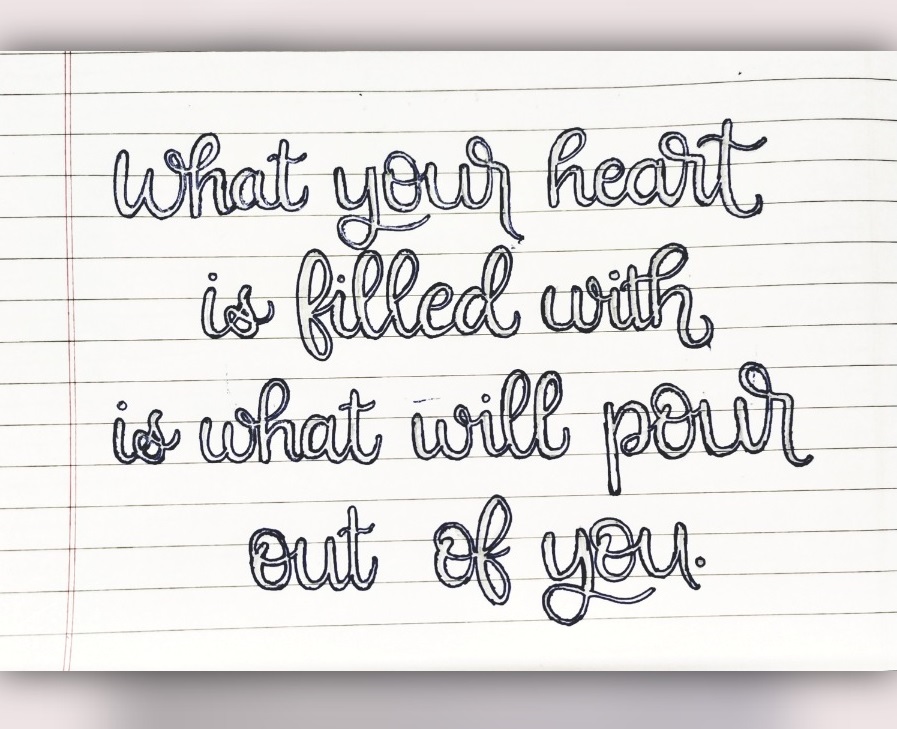 What your heart
is filled with
is what will pour
out of you.